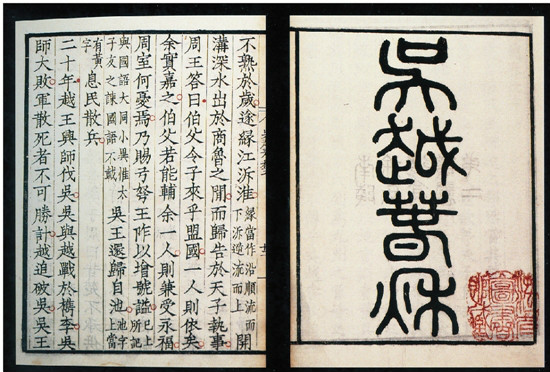 吳越春秋
不熟於歲遂緣江泝淮緣當作沿順流而下泝逆流而上開
溝深水出於商魯之閒而歸告於天子執事
周王答曰伯父令子來乎盟國一人則依矣
余實嘉之伯父若能輔余一人則兼受永福
周室何憂焉乃賜弓弩王阼以增號謚已上所記
與國語大同小異惟太子友之諫國語不載吳王還歸自池池字上當
有黃字息民散兵
二十年越王興師伐吳吳與越戰於檇李吳
師大敗軍散死者不可勝計越追破吳吳王